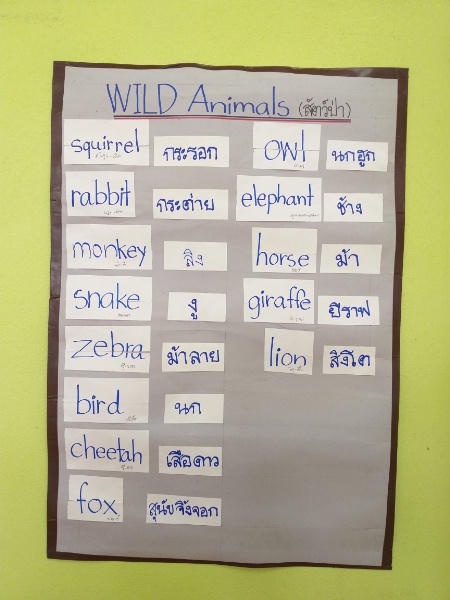 WILD Animals (สัตว์ป่า)
squirrel กระรอก
rabbit กระต่าย
monkey ลิง
snake งู
zebra ม้าลาย
bird นก
cheetah เสือดาว
fox สุนัขจิ้งจอก
owl นกฮูก
elephant ช้าง
horse ม้า
giraffe ยีราฟ
lion สิงโต